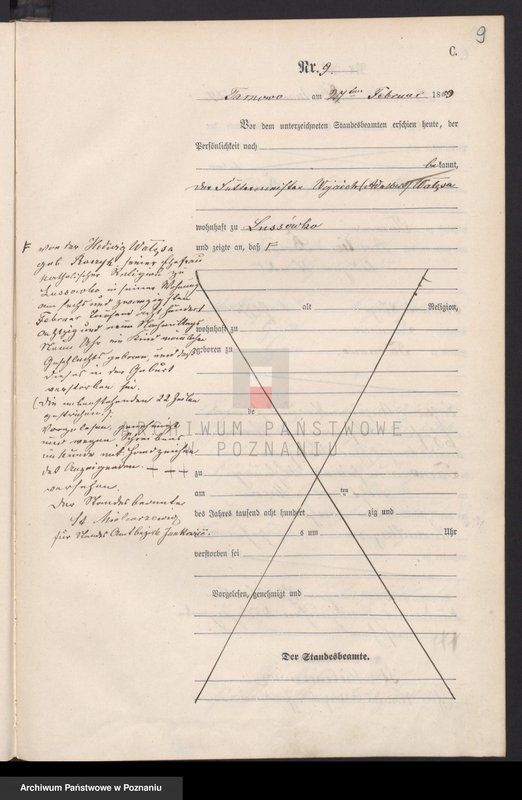 9
C.
Nr. 9.
Tarnowo am 27ten Februar 1889
Vor dem unterzeichneten Standesbeamten erschien heute, der
Persönlichkeit nach
bekannt,
der Wojciech (Adalbert) Walysa
wohnhaft zu Lussowko
und zeigte an, daß F
F von der Hedwig Walysa
geb. seiner Ehefrau
katholischer Religion zu
Lussowko in seiner Wohnung
am sechs und zwanzigsten
Februar Tausend acht hundert
achtzig und neun Nachmittags
neun Uhr ein Kind männlichen
Geschlechts geboren, und daß
dieses in der Geburt
verstorben sei.
(Die nebenstehenden 22 Zeilen
gestrichen).
Vorgelesen, genehmigt
und wegen Schreibens
unkunde mit Handzeichen
des Anzeigenden — + + +
versehen.
Der Standesbeamte
für Standes Amtsbezirk
alt Religion,
wohnhaft zu
geboren zu
de
ARCHIWUM PAŃSTWOWE
W POZNANIU
zu
am ten
des Jahres tausend acht hundert zig und
s um Uhr
verstorben sei
Vorgelesen, genehmigt und
Der Standesbeamte.
Archiwum Państwowe w Poznaniu